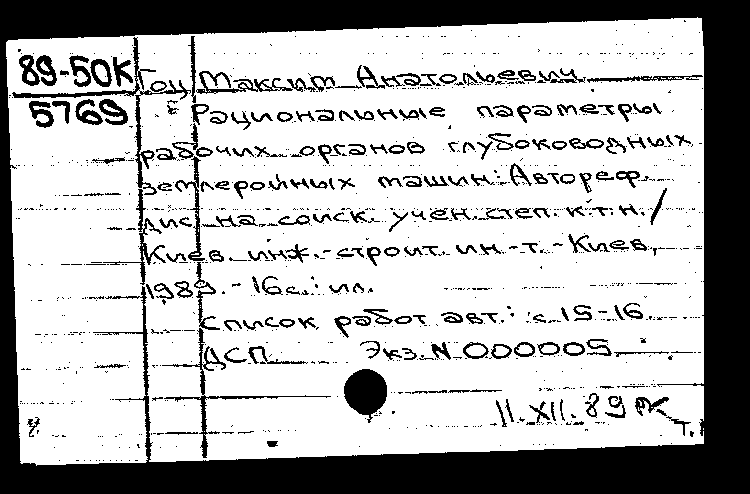 89-50К Гоц Максим Анатольевич
5769 Рациональные параметры
рабочих органов глубоководных
землеройных машин: Автореф.
дис. на соиск. учен. степ. к.т.н. /
Киев. инж.-строит. ин-т. - Киев,
1989. - 16с.: ил.
Список работ авт.: с. 15-16.
ДСП Экз. N 000005.
11.XII.89
Т.